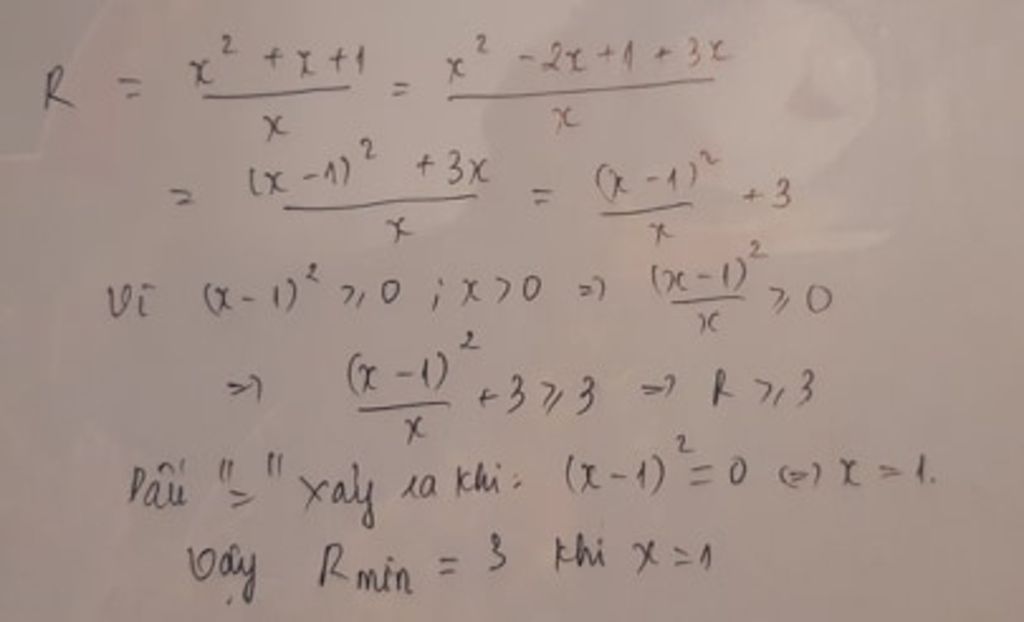 R = \frac{x^2 + x + 1}{x} = \frac{x^2 - 2x + 1 + 3x}{x}
= \frac{(x-1)^2 + 3x}{x} = \frac{(x-1)^2}{x} + 3
Vì (x-1)^2 ⩾ 0 ; x > 0 => \frac{(x-1)^2}{x} ⩾ 0
=> \frac{(x-1)^2}{x} + 3 ⩾ 3 => R ⩾ 3
Dấu "=" xảy ra khi: (x-1)^2 = 0 <=> x = 1.
Vậy Rmin = 3 khi x = 1